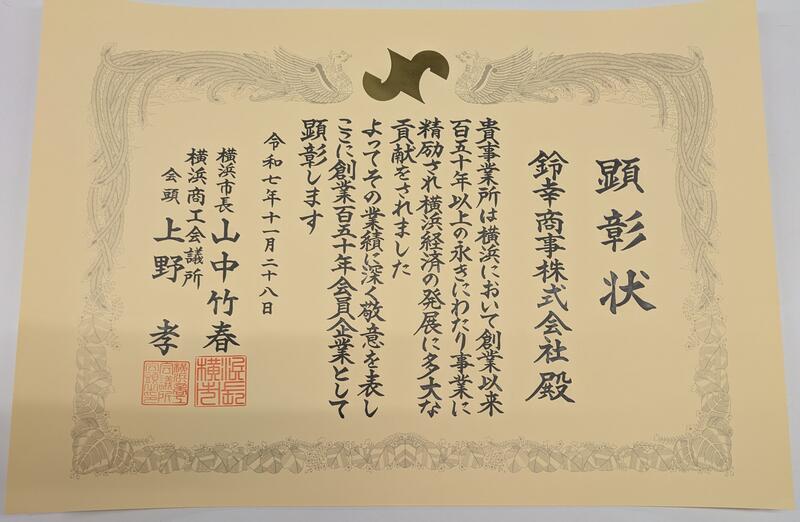 顕彰状
鈴幸商事株式会社殿
貴事業所は横浜において創業以来
百五十年以上の永きにわたり事業に
精励され横浜経済の発展に多大な
貢献をされました
よってその業績に深く敬意を表し
ここに創業百五十年会員企業として
顕彰します
令和七年十一月二十八日
横浜市長 山中竹春
横浜商工会議所
会頭 上野孝